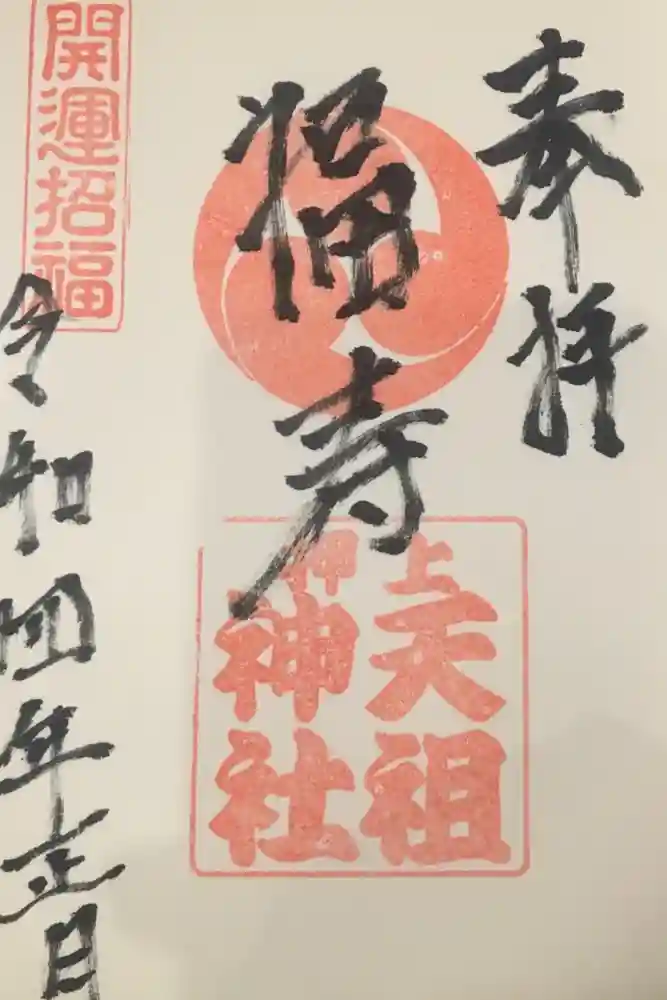 奉拝
福寿
押上
天祖
神社
開運招福
令和四年
日